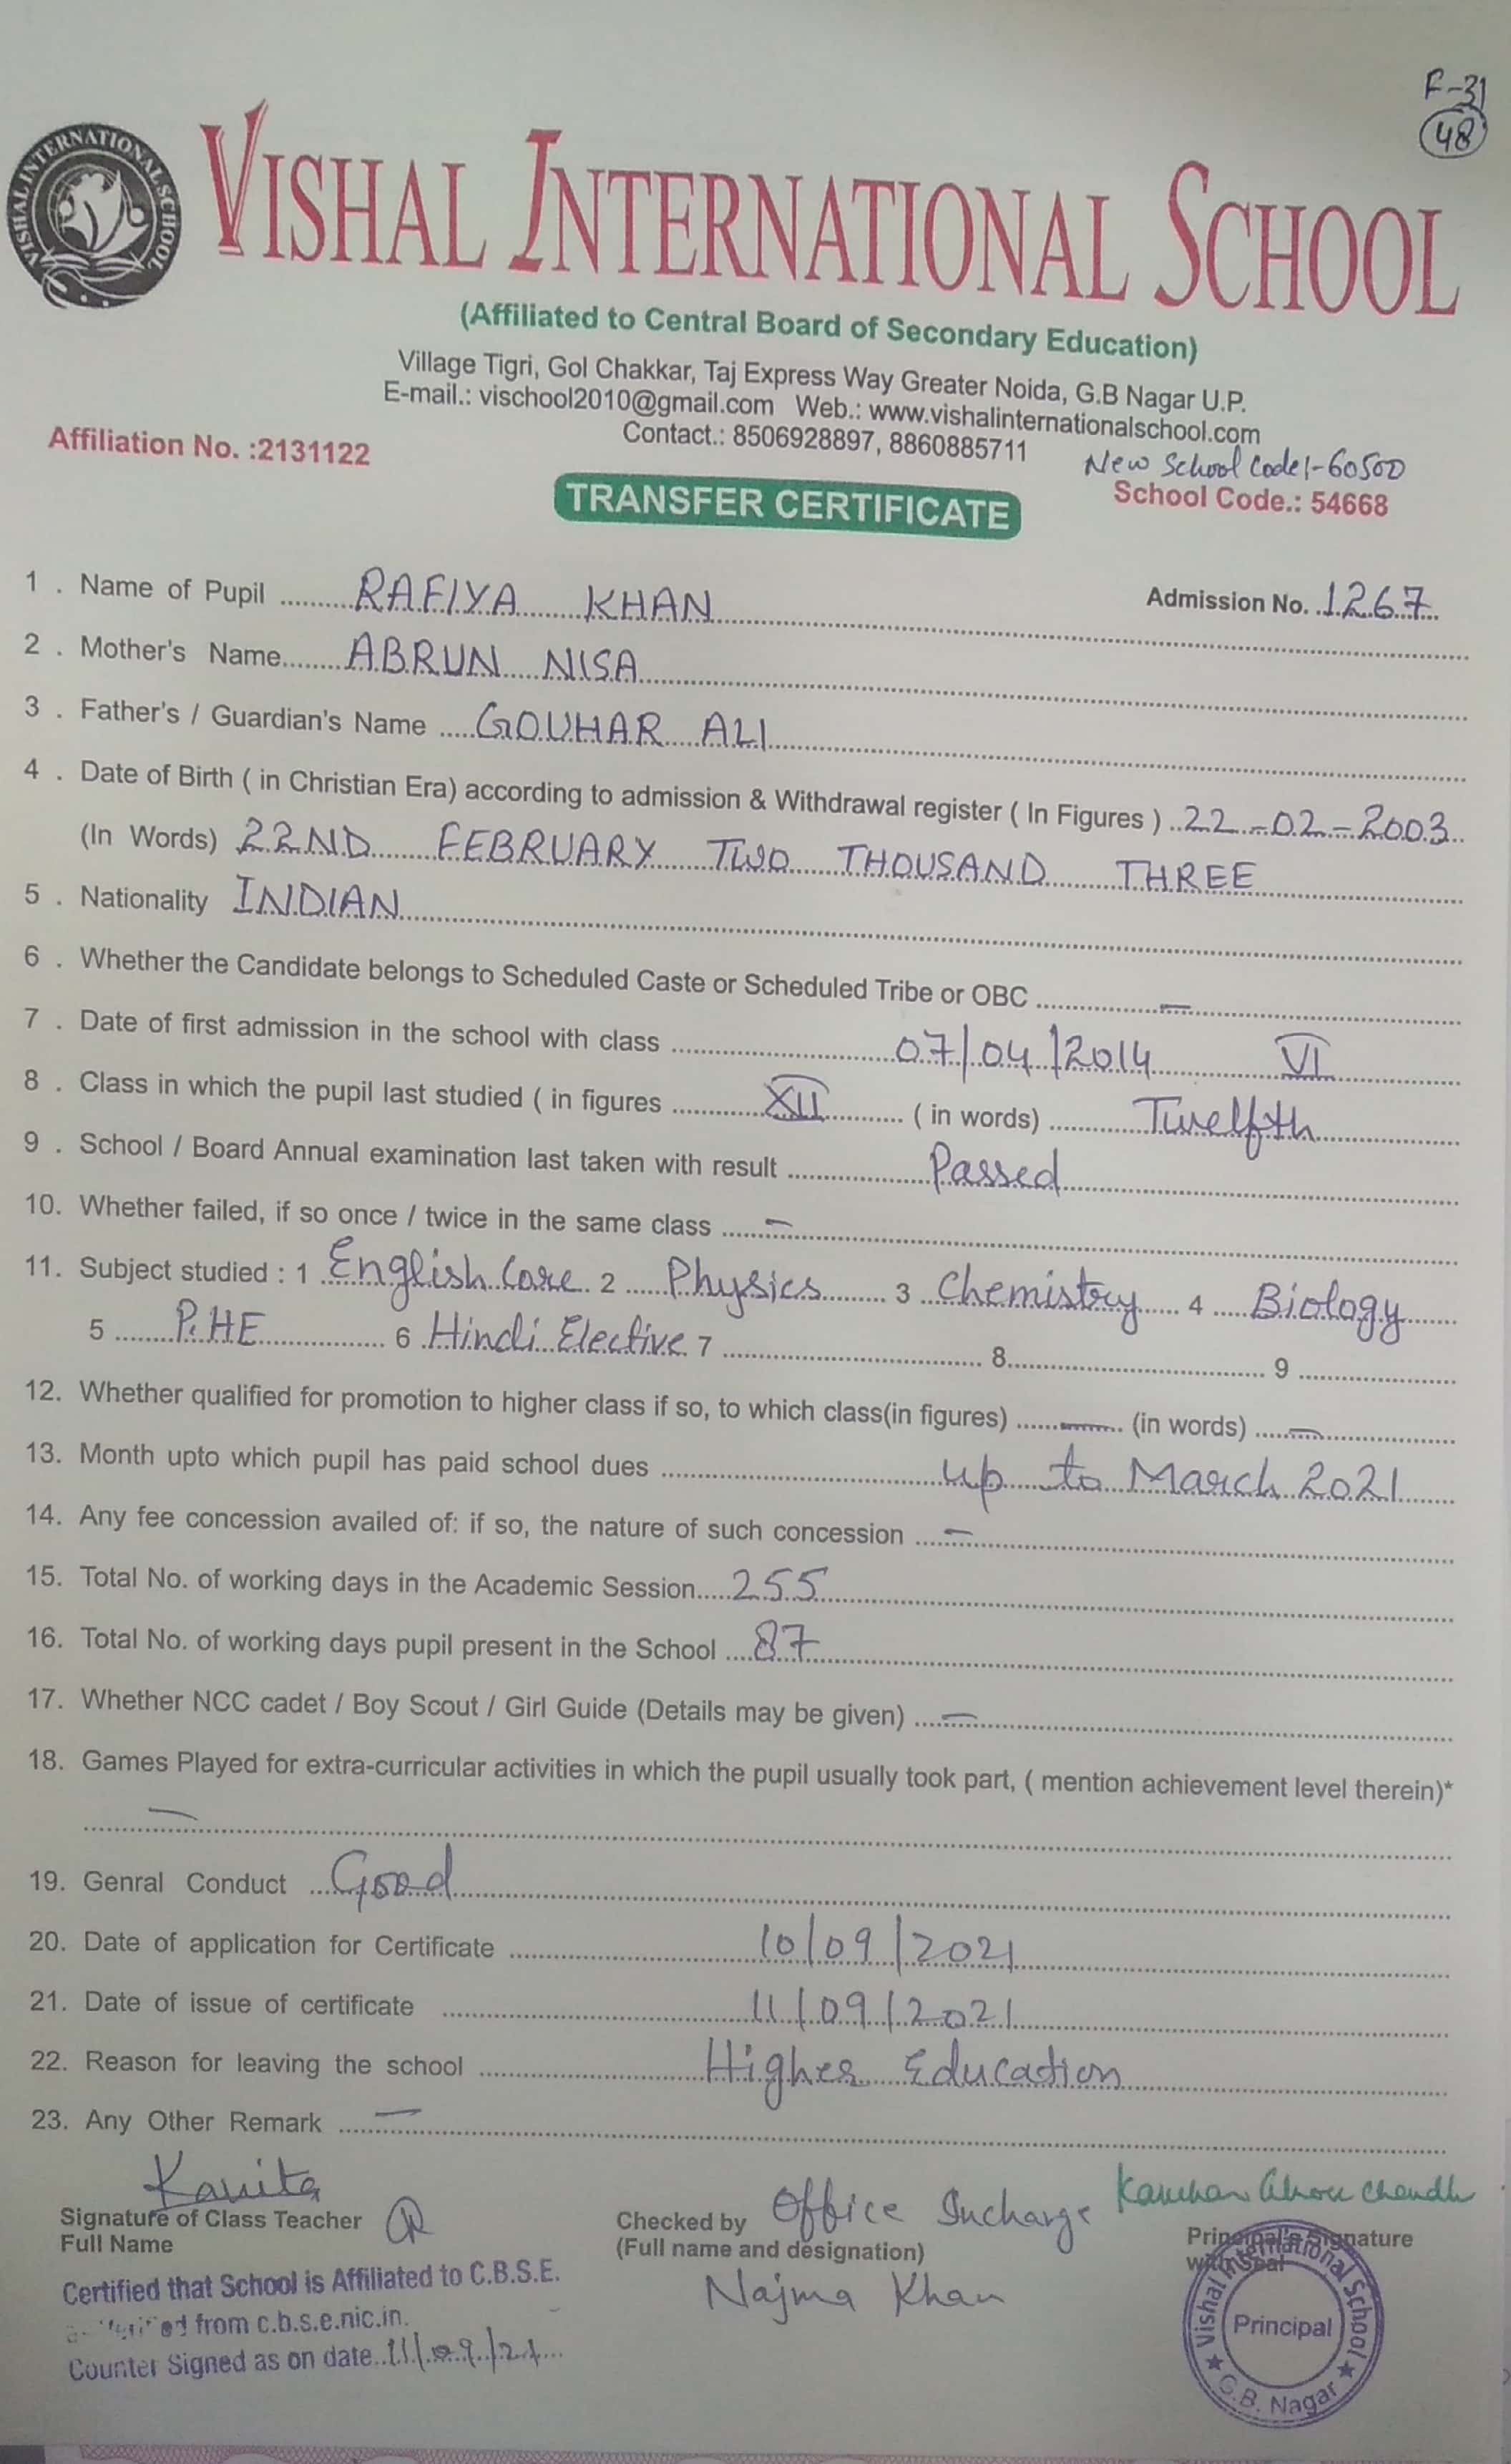 F-31
48
VISHAL INTERNATIONAL SCHOOL
VISHAL INTERNATIONAL SCHOOL
(Affiliated to Central Board of Secondary Education)
Village Tigri, Gol Chakkar, Taj Express Way Greater Noida, G.B Nagar U.P.
E-mail.: vischool2010@gmail.com Web.: www.vishalinternationalschool.com
Contact.: 8506928897, 8860885711
Affiliation No. :2131122
New School Code:-60500
School Code.: 54668
TRANSFER CERTIFICATE
1 . Name of Pupil RAFIYA KHAN Admission No. 1267
2 . Mother's Name ABRUN NISA
3 . Father's / Guardian's Name GOUHAR ALI
4 . Date of Birth ( in Christian Era) according to admission & Withdrawal register ( In Figures ) 22-02-2003
(In Words) 22ND FEBRUARY TWO THOUSAND THREE
5 . Nationality INDIAN
6 . Whether the Candidate belongs to Scheduled Caste or Scheduled Tribe or OBC —
7 . Date of first admission in the school with class 07/04/2014 VI
8 . Class in which the pupil last studied ( in figures XII ( in words) Twelfth
9 . School / Board Annual examination last taken with result Passed
10. Whether failed, if so once / twice in the same class —
11. Subject studied : 1 English Core 2 Physics 3 Chemistry 4 Biology
5 P.HE 6 Hindi Elective 7 8 9
12. Whether qualified for promotion to higher class if so, to which class(in figures) — (in words) —
13. Month upto which pupil has paid school dues up to March 2021
14. Any fee concession availed of: if so, the nature of such concession —
15. Total No. of working days in the Academic Session 255
16. Total No. of working days pupil present in the School 87
17. Whether NCC cadet / Boy Scout / Girl Guide (Details may be given) —
18. Games Played for extra-curricular activities in which the pupil usually took part, ( mention achievement level therein)*
—
19. Genral Conduct Good
20. Date of application for Certificate 10/09/2021
21. Date of issue of certificate 11/09/2021
22. Reason for leaving the school Higher Education
23. Any Other Remark —
Kavita
Signature of Class Teacher
Full Name
Checked by Office Incharge
(Full name and designation)
Najma Khan
Principal's Signature
with Seal
Vishal International School
Principal
G.B. Nagar
Certified that School is Affiliated to C.B.S.E.
from c.b.s.e.nic.in.
Counter Signed as on date 11/09/21